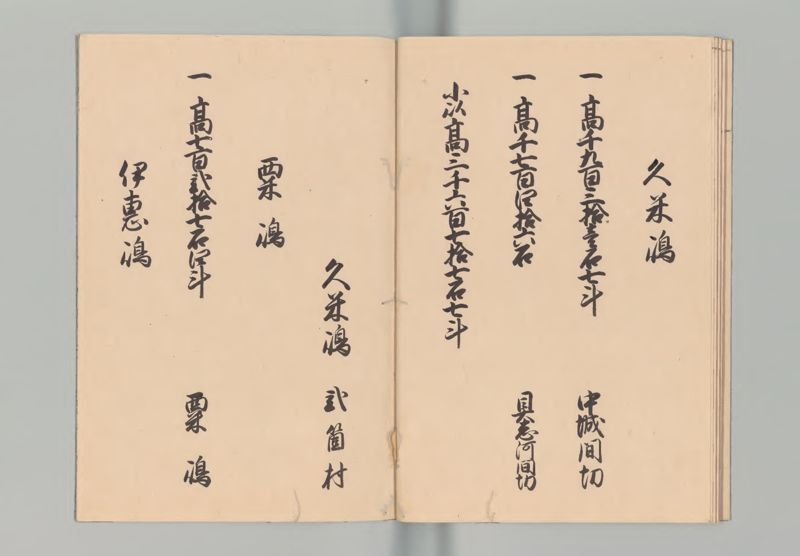 久米嶋
一 高千九百三拾壱石七斗 中城間切
一 高千七百四拾六石 具志河間切
小以高三千六百七拾七石七斗
久米嶋 弐箇村
粟嶋
一 高七百弐拾七石四斗 粟嶋
伊恵嶋